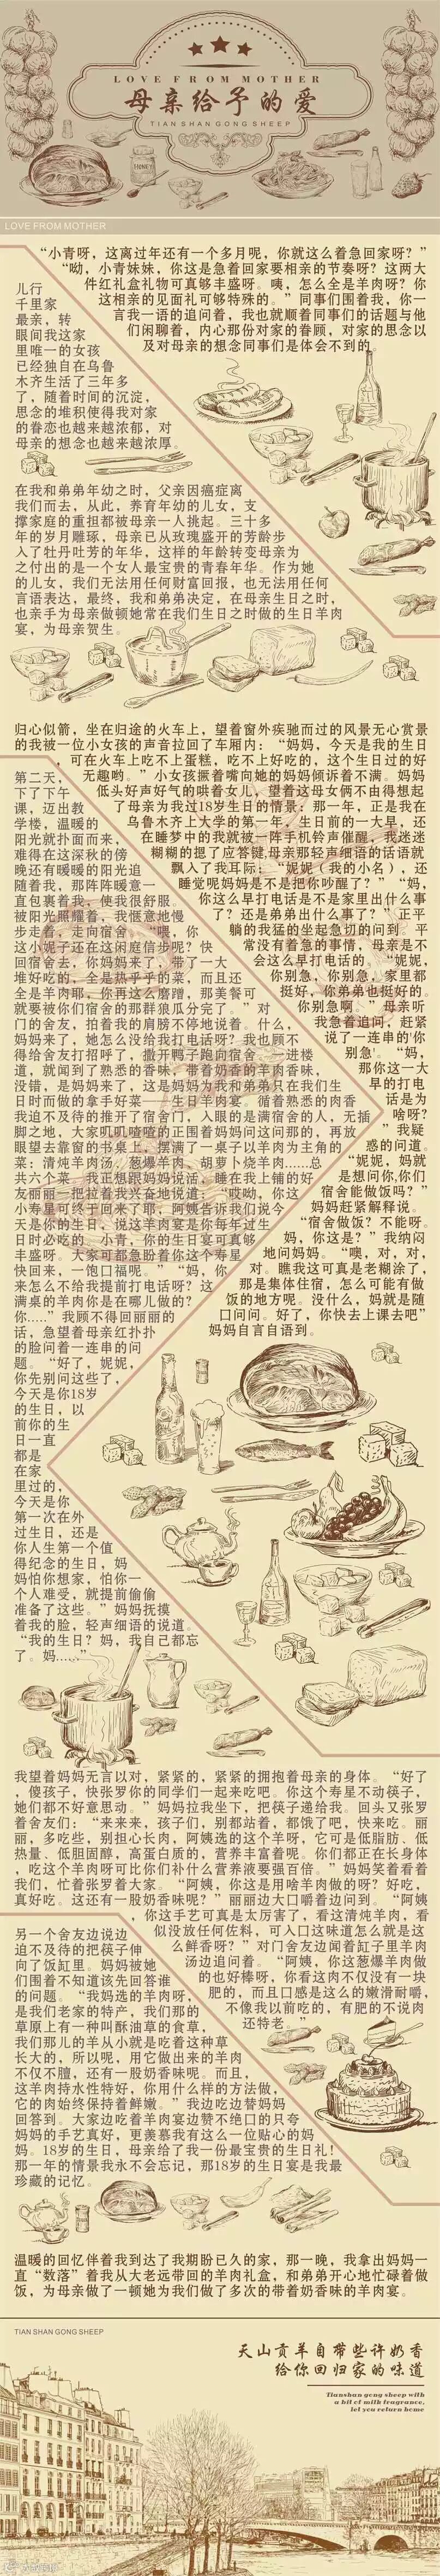 LOVE FROM MOTHER
母亲给予的爱
TIAN SHAN GONG SHEEP
HONEY
LOVE FROM MOTHER
“小青呀，这离过年还有一个多月呢，你就这么着急回家呀？”
“呦，小青妹妹，你这是急着回家要相亲的节奏呀？这两大
件红礼盒礼物可真够丰盛呀。咦，怎么全是羊肉呀？你
这相亲的见面礼可够特殊的。”同事们围着我，你一
言我一语的追问着，我也就顺着同事们的话题与他
们闲聊着，内心那份对家的眷顾，对家的思念以
及对母亲的想念同事们是体会不到的。
儿行
千里家
最亲，转
眼间我这家
里唯一的女孩
已经独自在乌鲁
木齐生活了三年多
了，随着时间的沉淀，
思念的堆积使得我对家
的眷恋也越来越浓郁，对
母亲的想念也越来越浓厚。
在我和弟弟年幼之时，父亲因癌症离
我们而去，从此，养育年幼的儿女，支
撑家庭的重担都被母亲一人挑起。三十多
年的岁月雕琢，母亲已从玫瑰盛开的芳龄步
入了牡丹吐芳的年华，这样的年龄转变母亲为
之付出的是一个女人最宝贵的青春年华。作为她
的儿女，我们无法用任何财富回报，也无法用任何
言语表达，最终，我和弟弟决定，在母亲生日之时，
也亲手为母亲做顿她常在我们生日之时做的生日羊肉
宴，为母亲贺生。
归心似箭，坐在归途的火车上，望着窗外疾驰而过的风景无心赏景
的我被一位小女孩的声音拉回了车厢内：“妈妈，今天是我的生日
，可在火车上吃不上蛋糕，吃不上好吃的，这个生日过的好
无趣哟。”小女孩撅着嘴向她的妈妈倾诉着不满。妈妈
低头好声好气的哄着女儿，望着这母女俩不由得想起
了母亲为我过18岁生日的情景：那一年，正是我在
乌鲁木齐上大学的第一年，生日前的一大早，还
在睡梦中的我就被一阵手机铃声催醒，我迷迷
糊糊的摁了应答键,母亲那轻声细语的话语就
飘入了我耳际：“妮妮（我的小名），还
睡觉呢妈妈是不是把你吵醒了？”“妈，
你这么早打电话是不是家里出什么事
了？还是弟弟出什么事了？”正平
躺的我猛的坐起急切的问到。平
常没有着急的事情，母亲是不
会这么早打电话的。“妮妮，
你别急，你别急，家里都
挺好，你弟弟也挺好的。
你别急啊。”母亲听
我急着追问，赶紧
说了一连串的‘你
别急’。“妈，
那你这一大
早的打电
话是为
啥呀？
”我疑
惑的问道。
“妮妮，妈就
是想问你,你们
宿舍能做饭吗？”
妈妈赶紧解释说。
“宿舍做饭？不能呀。
妈，你这是？”我纳闷
地问妈妈。“噢，对，对，
对。瞧我这可真是老糊涂了，
那是集体住宿，怎么可能有做
饭的地方呢。没什么，妈就是随
口问问。好了，你快去上课去吧”
妈妈自言自语到。
第二天，
下了下午
课，迈出教
学楼，温暖的
阳光就扑面而来，
难得在这深秋的傍
晚还有暖暖的阳光追
随着我，那阵阵暖意一
直包裹着我，使我很舒服。
被阳光照耀着，我惬意地慢
步走着，走向宿舍。“喂，你
这小妮子还在这闲庭信步呢？快
回宿舍去，你妈妈来了，带了一大
堆好吃的，全是热乎乎的菜，而且还
全是羊肉耶，你再这么磨蹭，那美餐可
就要被你们宿舍的那群狼瓜分完了。”对
门的舍友，拍着我的肩膀不停地说着。什么，
妈妈来了，她怎么没给我打电话呀？我也顾不
得给舍友打招呼了，撒开鸭子跑向宿舍。一进楼
道，就闻到了熟悉的香味，带着奶香的羊肉香味，
没错，是妈妈来了，这是妈妈为我和弟弟只在我们生
日时而做的拿手好菜——生日羊肉宴。循着熟悉的肉香
我迫不及待的推开了宿舍门，入眼的是满宿舍的人，无插
脚之地，大家叽叽喳喳的正围着妈妈问这问那的，再放
眼望去靠窗的书桌上，摆满了一桌子以羊肉为主角的
菜：清炖羊肉汤，葱爆羊肉，胡萝卜烧羊肉......总
共六个菜。我正想跟妈妈说话，睡在我上铺的好
友丽丽一把拉着我兴奋地说道：“哎呦，你这
小寿星可终于回来了耶，阿姨告诉我们说今
天是你的生日，说这羊肉宴是你每年过生
日时必吃的。小青，你的生日宴可真够
丰盛呀。大家可都急盼着你这个寿星
快回来，一饱口福呢。”“妈，你
来怎么不给我提前打电话呀？这
满桌的羊肉你是在哪儿做的？
你.....”我顾不得回丽丽的
话，急望着母亲红扑扑
的脸问着一连串的问
题。“好了，妮妮，
你先别问这些了，
今天是你18岁
的生日，以
前你的生
日一直
都是
在家
里过的，
今天是你
第一次在外
过生日，还是
你人生第一个值
得纪念的生日，妈
妈怕你想家，怕你一
个人难受，就提前偷偷
准备了这些。”妈妈抚摸
着我的脸，轻声细语的说道。
“我的生日？妈，我自己都忘
了。妈.....”
我望着妈妈无言以对，紧紧的，紧紧的拥抱着母亲的身体。“好了
，傻孩子，快张罗你的同学们一起来吃吧。你这个寿星不动筷子，
她们都不好意思动。”妈妈拉我坐下，把筷子递给我。回头又张罗
着舍友们：“来来来，孩子们，别都站着，都饿了吧，快来吃。丽
丽，多吃些，别担心长肉，阿姨选的这个羊呀，它可是低脂肪、低
热量、低胆固醇，高蛋白质的，营养丰富着呢。你们都正在长身体
，吃这个羊肉呀可比你们补什么营养液要强百倍。”妈妈笑着看着
我们，忙着张罗着大家。“阿姨，你这是用啥羊肉做的呀？好吃，
真好吃。这还有一股奶香味呢？”丽丽边大口嚼着边问到。“阿姨
，你这手艺可真是太厉害了，看这清炖羊肉，看
似没放任何佐料，可入口这味道怎么就是这
么鲜香呀？”对门舍友边闻着缸子里羊肉
汤边追问着。“阿姨，你这葱爆羊肉做
的也好棒呀，你看这肉不仅没有一块
肥的，而且口感是这么的嫩滑耐嚼，
不像我以前吃的，有肥的不说肉
还特老。”
另一个舍友边说边
迫不及待的把筷子伸
向了饭缸里。妈妈被她
们围着不知道该先回答谁
的问题。“我妈选的羊肉呀，
是我们老家的特产，我们那的
草原上有一种叫酥油草的食草，
我们那儿的羊从小就是吃着这种草
长大的，所以呢，用它做出来的羊肉
不仅不膻，还有一股奶香味呢。而且，
这羊肉持水性特好，你用什么样的方法做，
它的肉始终保持着鲜嫩。”我边吃边替妈妈
回答到。大家边吃着羊肉宴边赞不绝口的只夸
妈妈的手艺真好，更羡慕我有这么一位贴心的妈
妈。18岁的生日，母亲给了我一份最宝贵的生日礼!
那一年的情景我永不会忘记，那18岁的生日宴是我最
珍藏的记忆。
温暖的回忆伴着我到达了我期盼已久的家，那一晚，我拿出妈妈一
直“数落”着我从大老远带回的羊肉礼盒，和弟弟开心地忙碌着做
饭，为母亲做了一顿她为我们做了多次的带着奶香味的羊肉宴。
TIAN SHAN GONG SHEEP
天山贡羊自带些许奶香
给你回归家的味道
Tianshan gong sheep with
a bit of milk fragrance,
let you return home